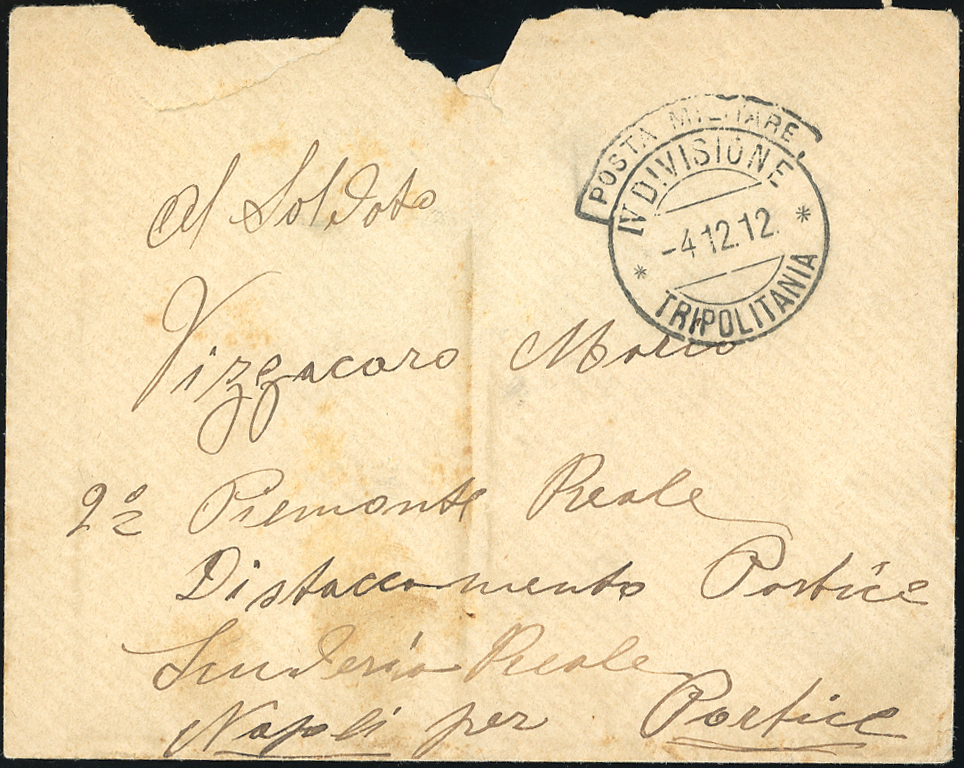 POSTA MILITARE
IV DIVISIONE
-4 12.12.
* *
TRIPOLITANIA
Al Soldato
Vizzacaro Mario
2º Piemonte Reale
Distaccamento Portice
Scuderia Reale
Napoli per Portice